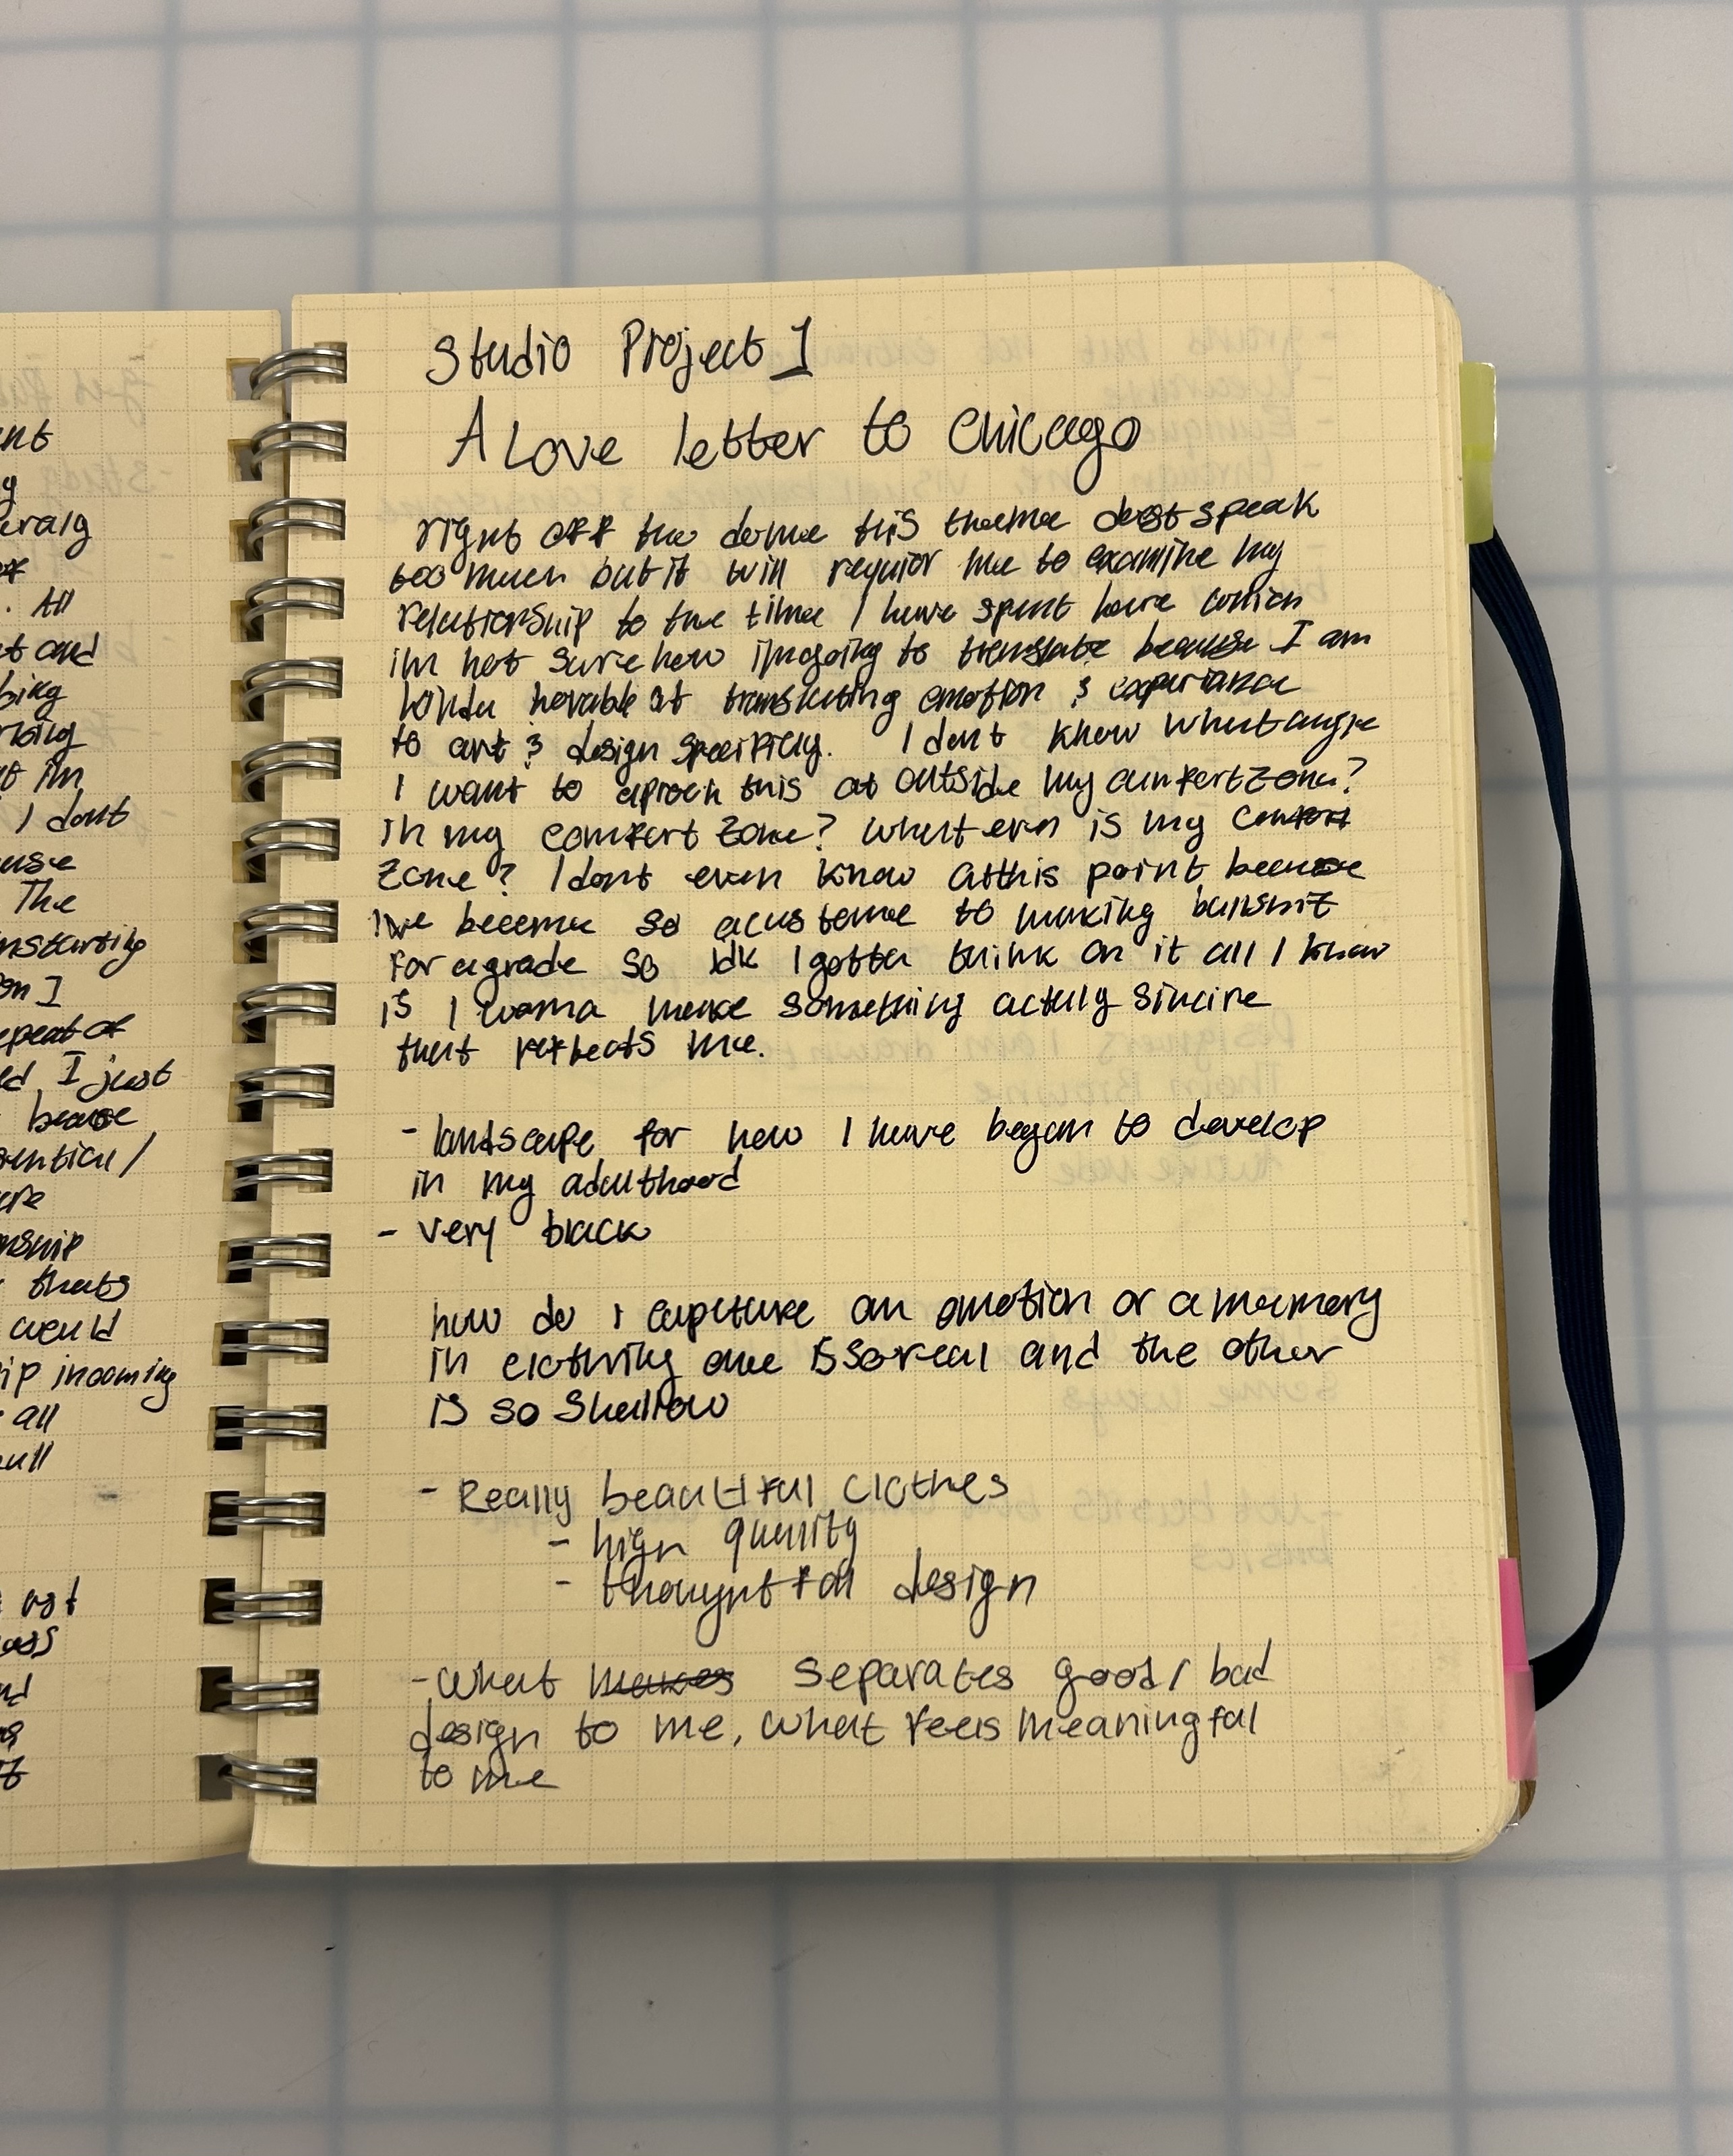 ent
g
. All
t and
I dont
use
The
nstarting
on 1
epeat of
ed I just
bcause
ential/
ure
nship
thats
would
ip incoming
all
ull
ast
ass
nd
Studio Project 1
A Love letter to Chicago
right off the dome this theme dosst speak
too much but it will requior me to examine my
relationship to the time I have spent here
im not sure how imgoing to translate because I am
kinda horable at translating emotion & experiance
to art & design specificly. I dont know what angle
I want to aproch this at outside my cumfert zone?
in my comfert zone? what even is my comfort
zone? I dont even know atthis point because
ive become so acustome to making bullshit
for agrade so idk I gotta think on it all I know
is I wanna make something actuly sincire
that reflects me.
- landscape for how I have began to develop
in my adulthood
- very black
how do I capcture an emotion or a memory
in clothing one is so real and the other
is so shallow
- Really beautiful clothes
- high quality
- thoughtful design
- what makes separates good / bad
design to me, what feels meaningful
to me